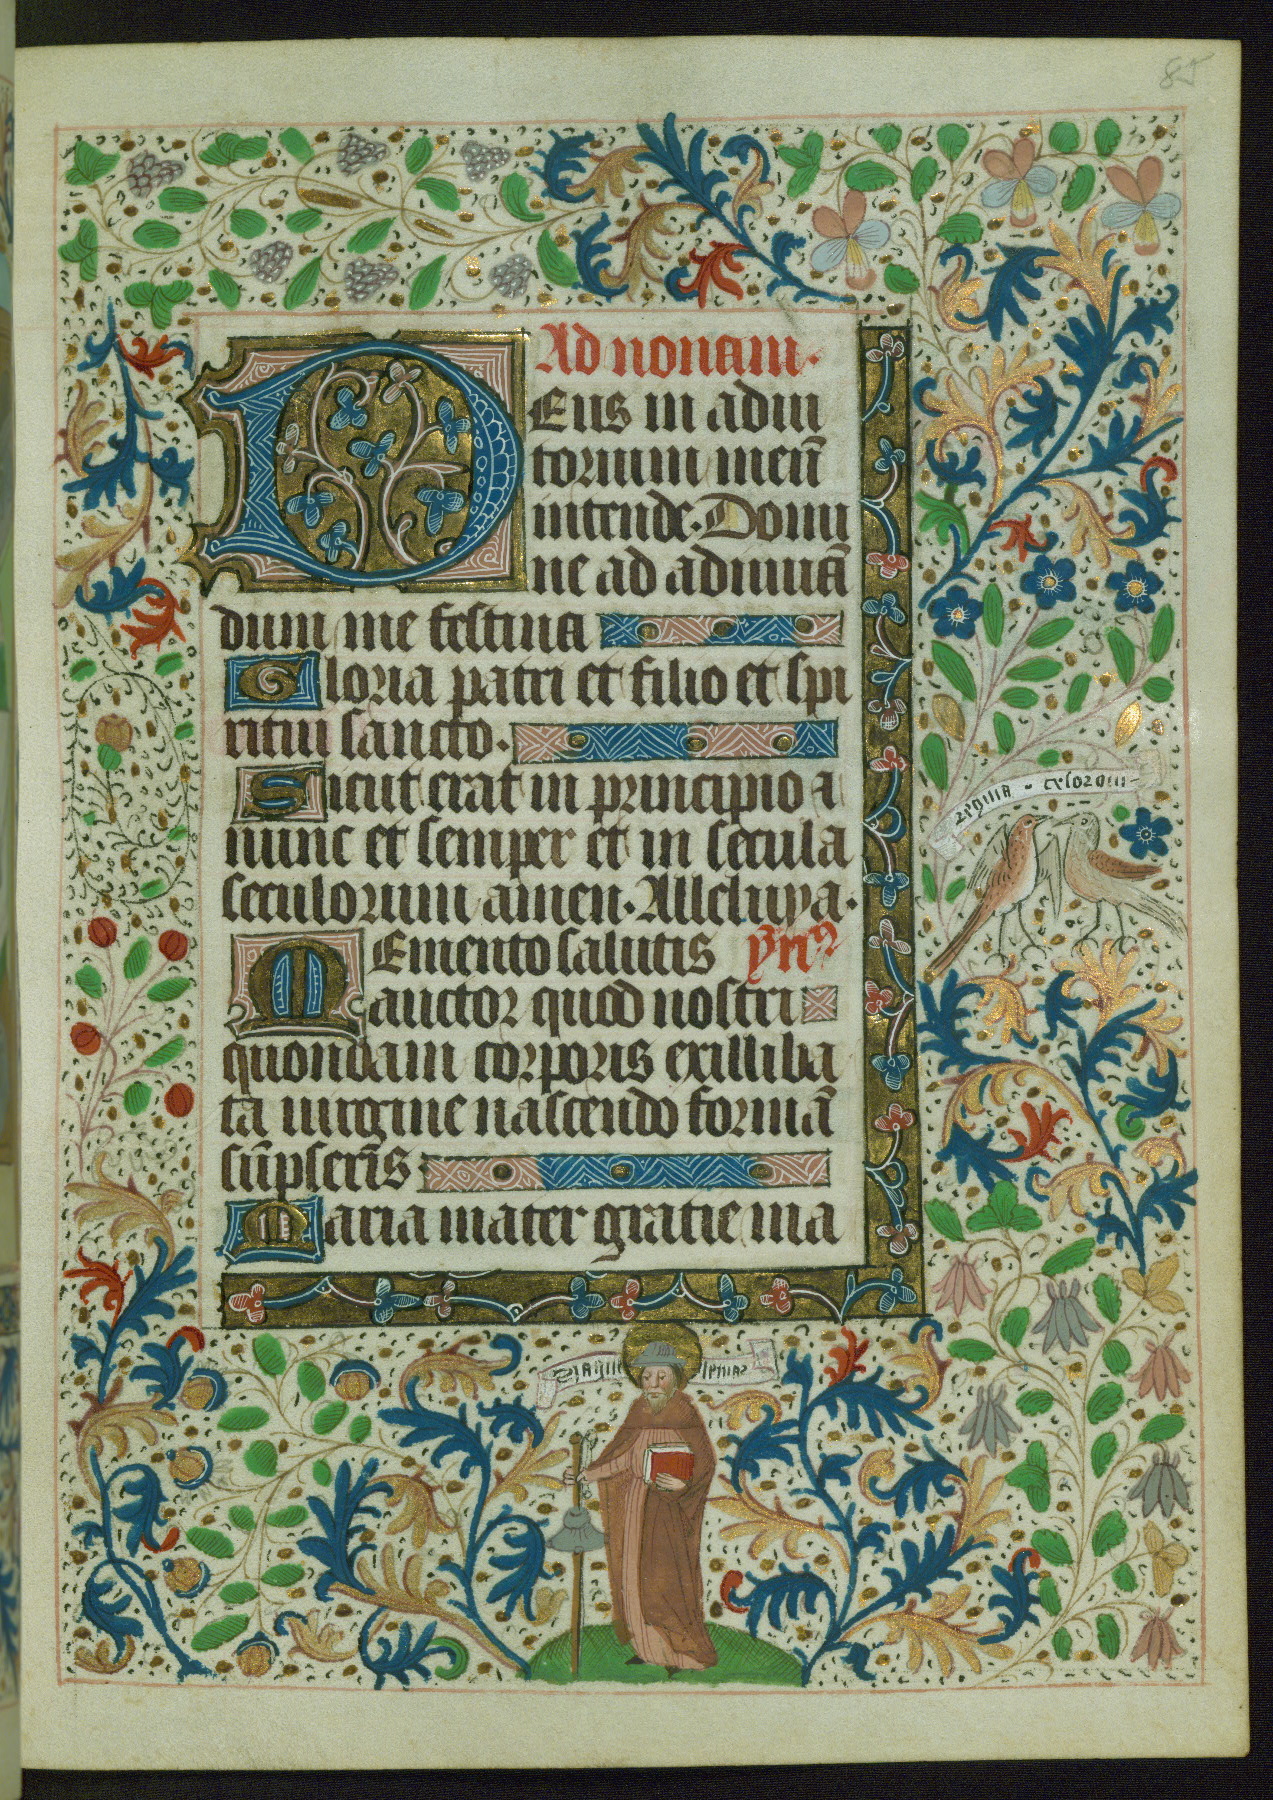 85
Ad nonam.
Eus in adiu
torium meū
intende. Domi
ne ad adiuuā
dum me festina
Gloria patri et filio et spi
ritui sancto.
Sicut erat in principio ⁊
nunc et semper et in secula
seculorum amen. Alleluya.
Memento salutis
auctor quod nostri
quondam corporis ex illiba
ta uirgine nascendo formā
sūpseris
Maria mater gratie ma
regina celorum